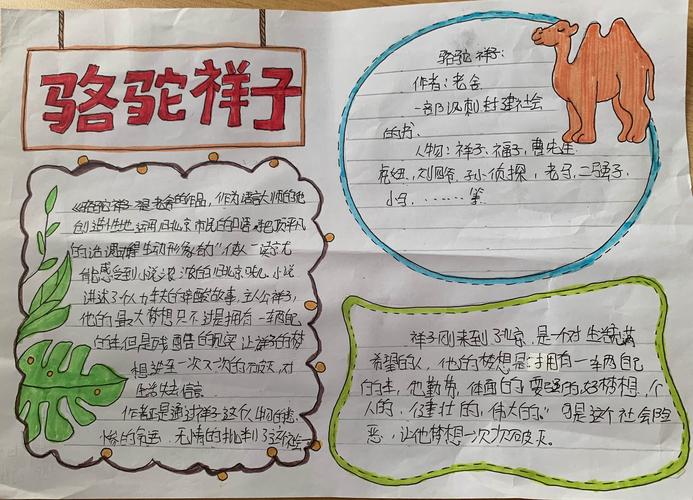 骆驼祥子
《骆驼祥子》是老舍的作品,作为语言大师的他
创造性地运用北京市民的口语,把平凡
的语调生动形象的"一读就
能感受到小说浓浓的北京味儿。小说
讲述了个人力车夫的辛酸故事,主人公祥子,
他的最大梦想只不过是拥有一车两自己
的车,但是残酷的现实让祥子的梦
想甚至一次又一次的破灭,对
生活失去信言
作者正是通过祥子这个人物的悲
惨的命运,无情的批判了这个
骆驼祥子:
作者:老舍
一部讽刺封建社会
的书、
人物:祥子、福子,曹先生
虎妞、刘四爷、孙小侦探,老马、二强子,
小马,……等
祥子刚来到了北京,是一个对生活充满
希望的人,他的梦想是拥有一车两自己
的车,他勤劳,体面的,要强的,好梦想,个
人的,健壮的,伟大的。可是这个社会险
恶,让他梦想一次次破灭。